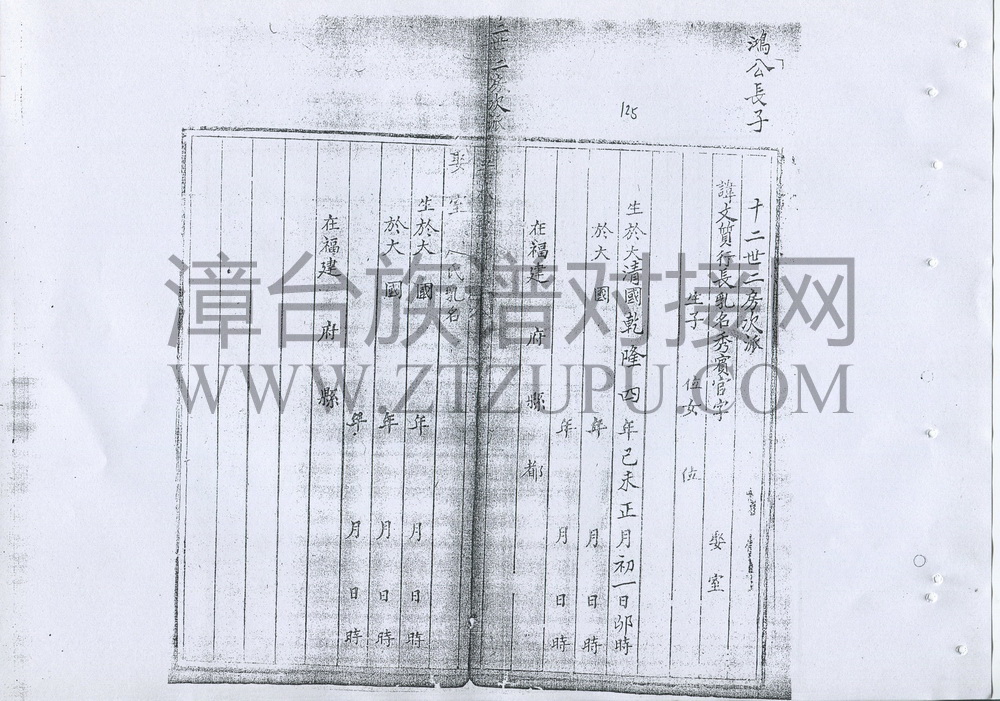 鴻公長子
125
十二世二房次派
諱文質行長乳名秀賓官字 娶室
生子 位女 位
生於大清國乾隆四年己未正月初一日卯時
於大 國 年 月 日 時
年 月 日 時
在福建 府 縣 都
二房次派
娶室 氏乳名
生於大 國 年 月 日 時
於大 國 年 月 日 時
年 月 日 時
在福建 府 縣
漳台族谱对接网
WWW.ZTZUPU.COM